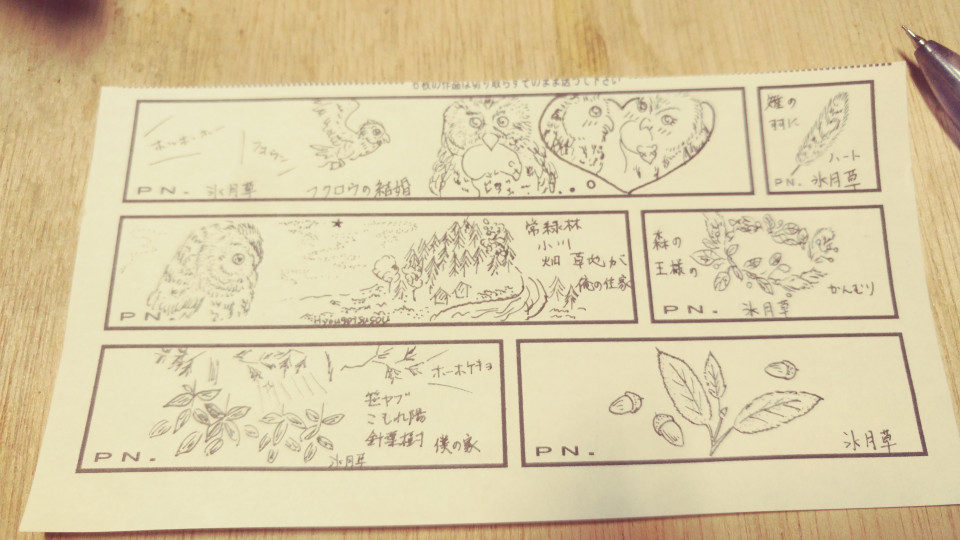 6枚の作品は切り取らずそのまま送って下さい
ホーホーホー
PN. 氷月草
フクロウの結婚
の
羽に
ハート
PN. 氷月草
常緑林
小川
畑 草地が
俺の住家
PN.
Hyougetusou
森の
王様の
かんむり
PN. 氷月草
ホーホケキョ
笹ヤブ
こもれ陽
針葉樹 僕の家
PN. 氷月草
PN. 氷月草